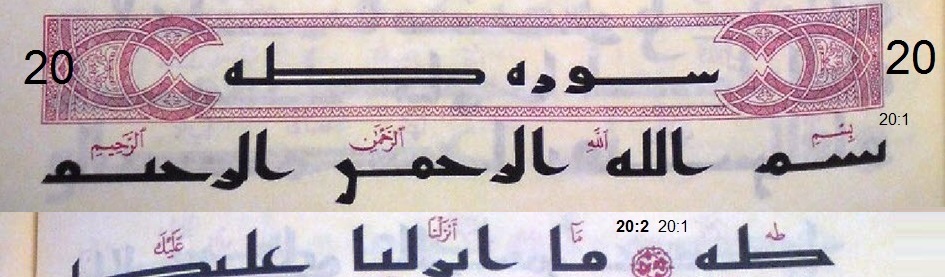 20 سوره طه 20
20:1
بِسْمِ اللَّهِ الرَّحْمَٰنِ الرَّحِيمِ
بسم الله الرحمن الرحيم
طه 20:1 20:2 مَا أَنزَلْنَا عَلَيْكَ
طه ما انزلنا عليك